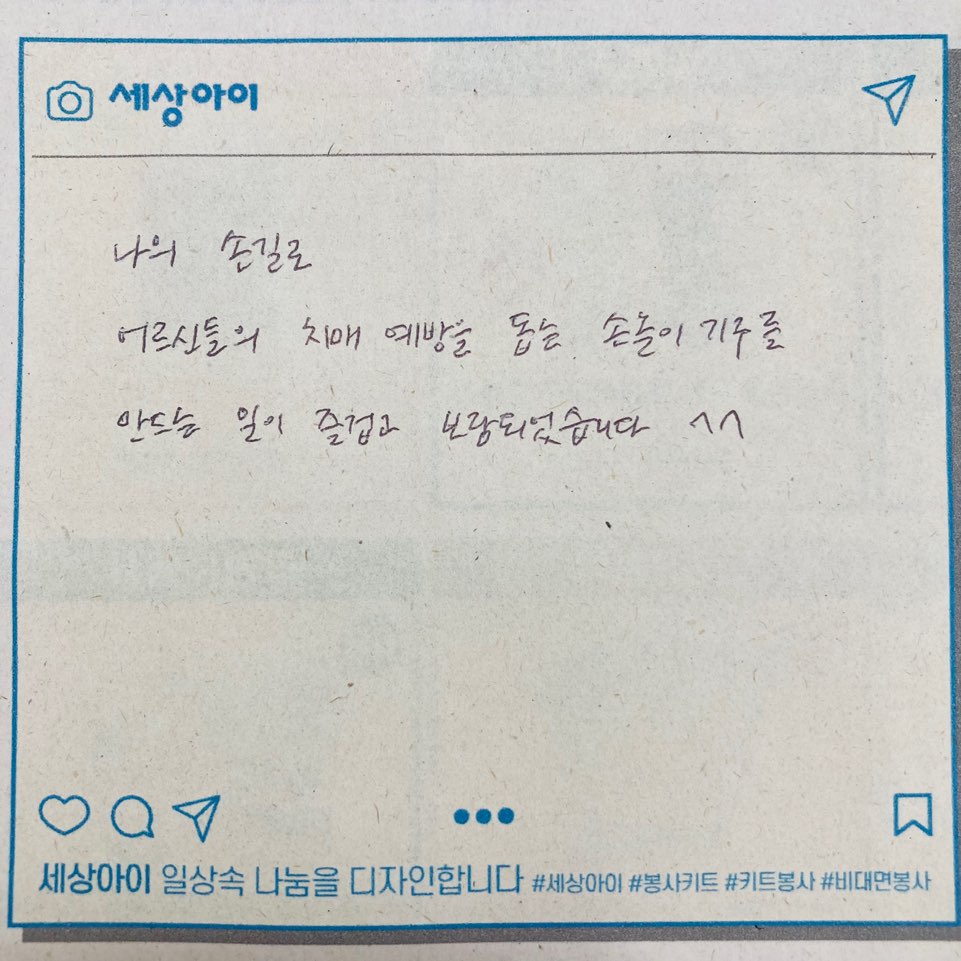 세상아이
나의 손길로
어르신들의 치매 예방을 돕는 손놀이 기구를
만드는 일이 즐겁고 보람되었습니다 ^^
세상아이 일상속 나눔을 디자인합니다 #세상아이 #봉사키트 #키트봉사 #비대면봉사